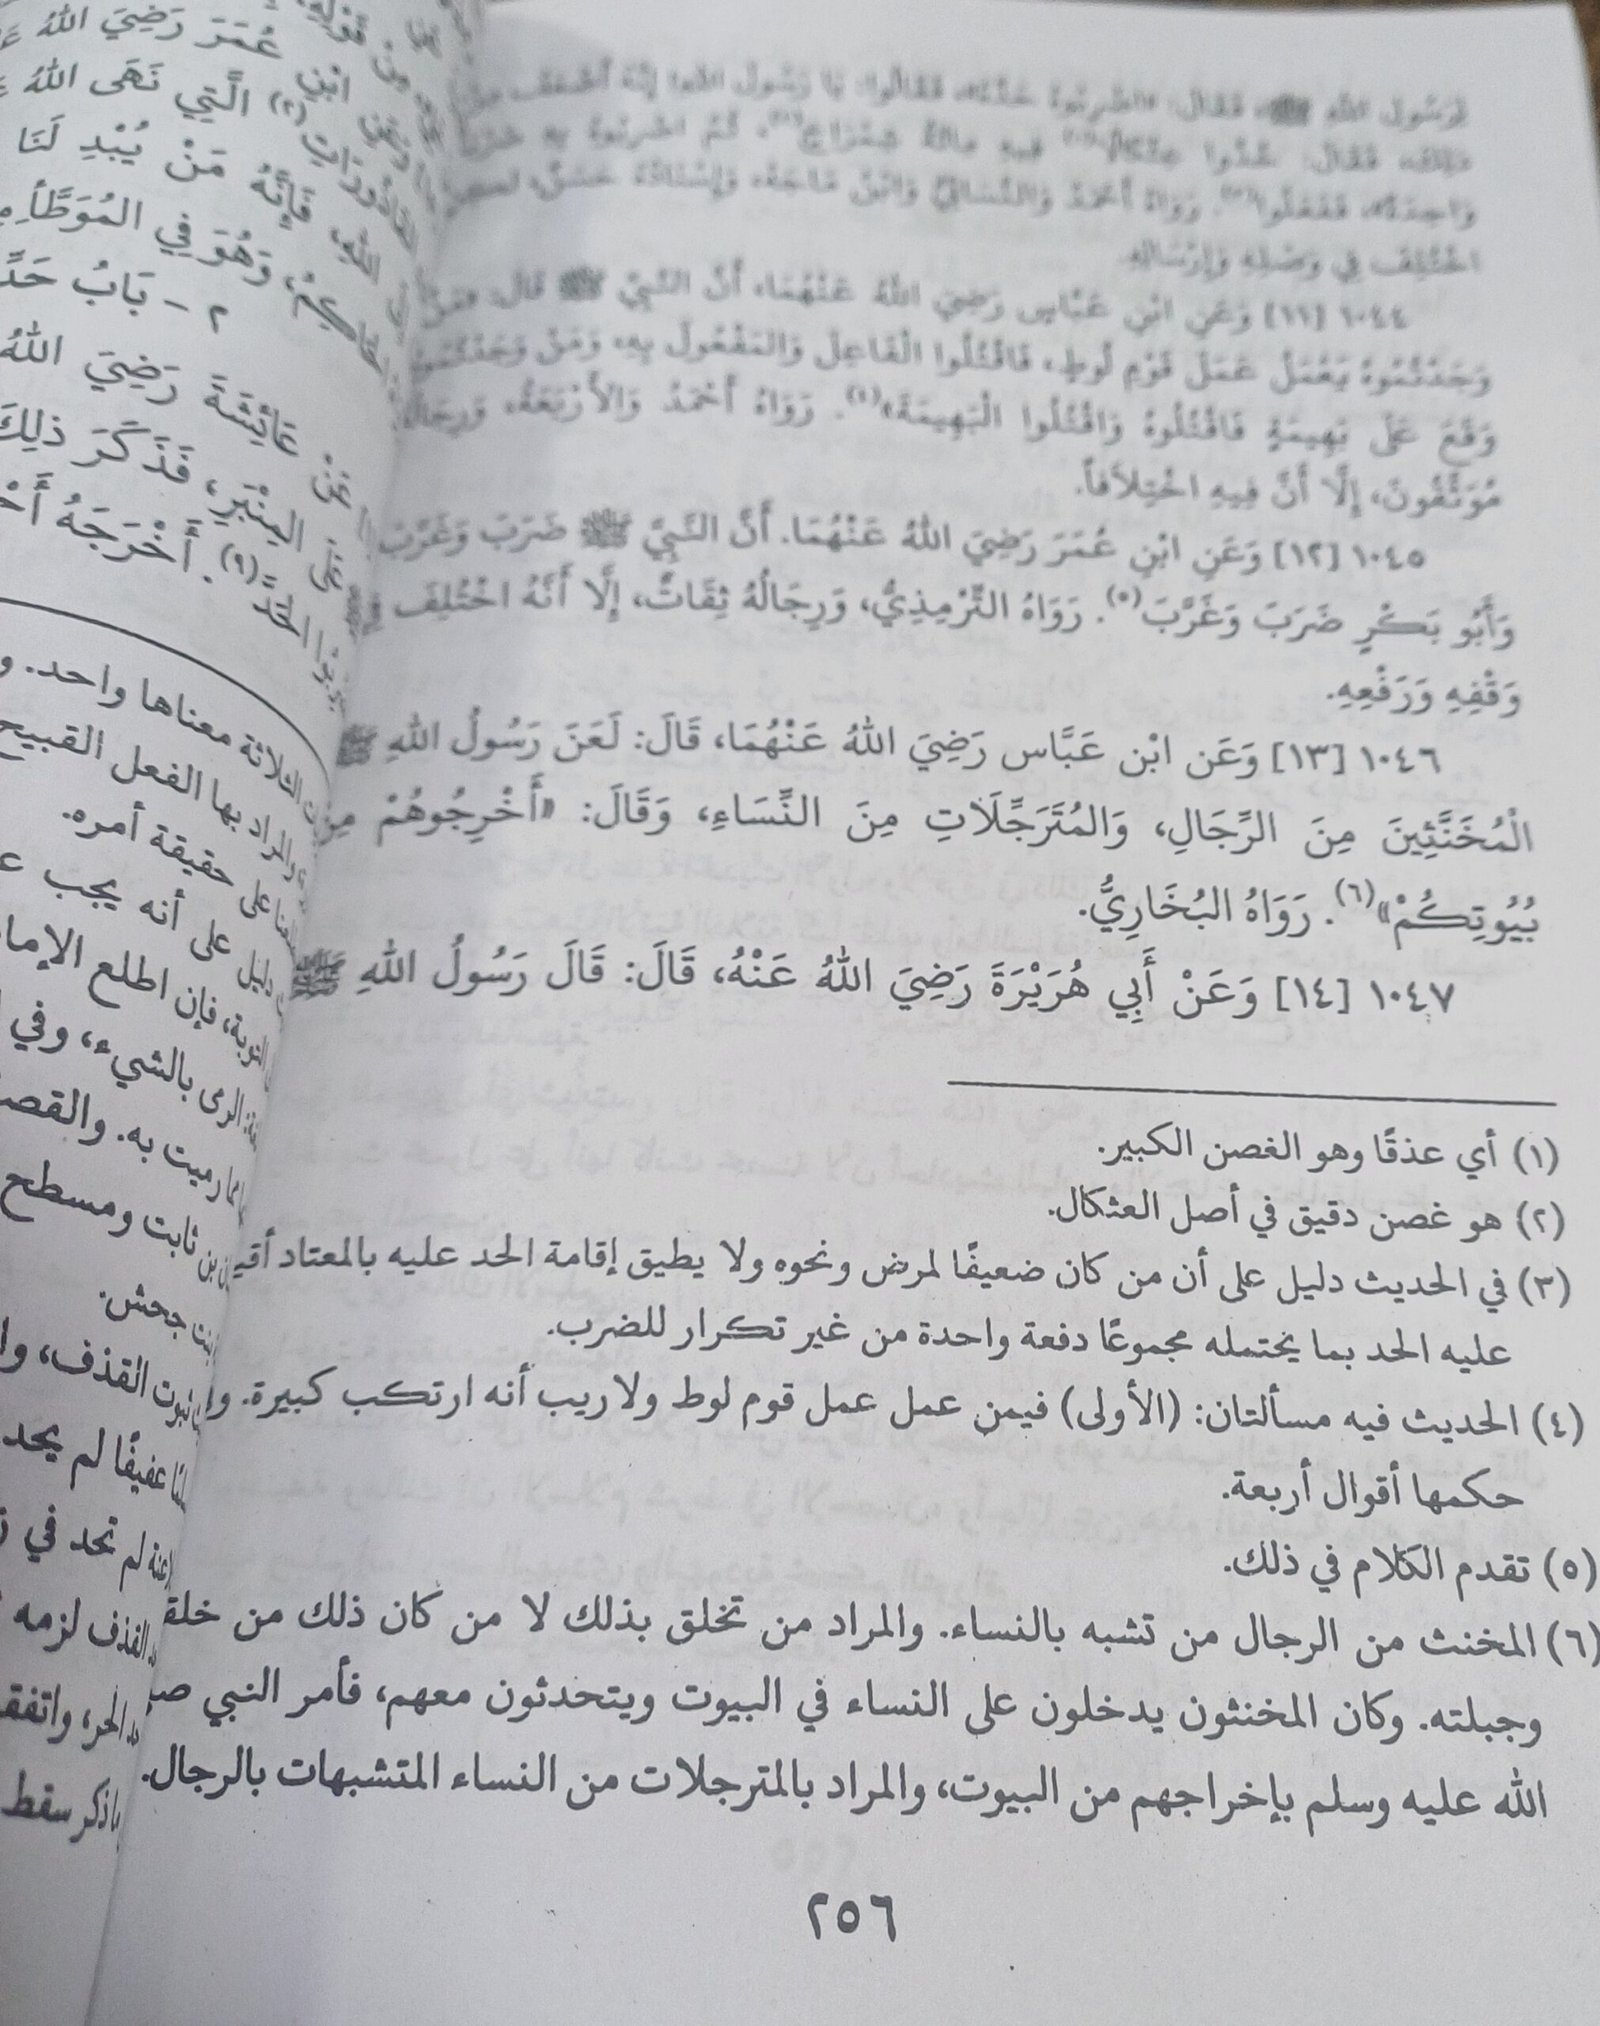 لِرَسُولِ اللهِ ﷺ، فَقَالَ: «اضْرِبُوهُ حَدَّهُ»، فَقَالُوا: يَا رَسُولَ اللهِ! إِنَّهُ أَضْعَفُ مِنْ
ذلِكَ، فَقَالَ: خُذُوا عِثْكَالًا(١) فِيهِ مِائَةُ شِمْرَاخٍ(٢)، ثُمَّ اضْرِبُوهُ بِهِ ضَرْبَةً
وَاحِدَةً»، فَفَعَلُوا(٣). رَوَاهُ أَحْمَدُ وَالنَّسَائِيُّ وَابْنُ مَاجَهْ، وَإِسْنَادُهُ حَسَنٌ، لكِنِ
اخْتُلِفَ فِي وَصْلِهِ وَإِرْسَالِهِ.
١٠٤٤ [١١] وَعَنِ ابْنِ عَبَّاسٍ رَضِيَ اللهُ عَنْهُمَا، أَنَّ النَّبِيَّ ﷺ قَالَ: «مَنْ
وَجَدْتُمُوهُ يَعْمَلُ عَمَلَ قَوْمِ لُوطٍ، فَاقْتُلُوا الْفَاعِلَ وَالمَفْعُولَ بِهِ، وَمَنْ وَجَدْتُمُوهُ
وَقَعَ عَلَى بَهِيمَةٍ فَاقْتُلُوهُ وَاقْتُلُوا الْبَهِيمَةَ»(٤). رَوَاهُ أَحْمَدُ وَالأَرْبَعَةُ، وَرِجَالُهُ
مُوَثَّقُونَ، إِلَّا أَنَّ فِيهِ اخْتِلَافاً.
١٠٤٥ [١٢] وَعَنِ ابْنِ عُمَرَ رَضِيَ اللهُ عَنْهُمَا. أَنَّ النَّبِيَّ ﷺ ضَرَبَ وَغَرَّبَ
وَأَبُو بَكْرٍ ضَرَبَ وَغَرَّبَ(٥). رَوَاهُ التِّرْمِذِيُّ، وَرِجَالُهُ ثِقَاتٌ، إِلَّا أَنَّهُ اخْتُلِفَ فِي
وَقْفِهِ وَرَفْعِهِ.
١٠٤٦ [١٣] وَعَنِ ابْنِ عَبَّاسٍ رَضِيَ اللهُ عَنْهُمَا، قَالَ: لَعَنَ رَسُولُ اللهِ ﷺ
الْمُخَنَّثِينَ مِنَ الرِّجَالِ، وَالمُتَرَجِّلَاتِ مِنَ النِّسَاءِ، وَقَالَ: «أَخْرِجُوهُمْ مِنْ
بُيُوتِكُمْ»(٦). رَوَاهُ البُخَارِيُّ.
١٠٤٧ [١٤] وَعَنْ أَبِي هُرَيْرَةَ رَضِيَ اللهُ عَنْهُ، قَالَ: قَالَ رَسُولُ اللهِ ﷺ
(١) أي عذقًا وهو الغصن الكبير.
(٢) هو غصن دقيق في أصل العثكال.
(٣) في الحديث دليل على أن من كان ضعيفًا لمرض ونحوه ولا يطيق إقامة الحد عليه بالمعتاد أقي
عليه الحد بما يحتمله مجموعًا دفعة واحدة من غير تكرار للضرب.
(٤) الحديث فيه مسألتان: (الأولى) فيمن عمل عمل قوم لوط ولاريب أنه ارتكب كبيرة. و
حكمها أقوال أربعة.
(٥) تقدم الكلام في ذلك.
(٦) المخنث من الرجال من تشبه بالنساء. والمراد من تخلق بذلك لا من كان ذلك من خلق
وجبلته. وكان المخنثون يدخلون على النساء في البيوت ويتحدثون معهم، فأمر النبي ص
الله عليه وسلم بإخراجهم من البيوت، والمراد بالمترجلات من النساء المتشبهات بالرجال.
٢٥٦
عُمَرَ رَضِيَ اللهُ
ابْنِ
الَّتِي نَهَى اللهُ
فَإِنَّهُ مَنْ يُبْدِ لَنَا
وَهُوَ فِي المُوَطَّأِ
٢ - بَابُ حَدِّ
عَنْ عَائِشَةَ رَضِيَ اللهُ
المِنْبَرِ، فَذَكَرَ ذلِكَ
الحَدَّ(٩). أَخْرَجَهُ
الثلاثة معناها واحد. و
والمراد بها الفعل القبيح
على حقيقة أمره.
دليل على أنه يجب
التوبة، فإن اطلع الإما
الرمى بالشيء، وفي
رميت به. والقص
بن ثابت ومسطح
بنت جحش.
ثبوت القذف، وا
عفيفًا لم يحد
لم تحد في
القذف لزمه
الحر، واتفق
ذكر سقط